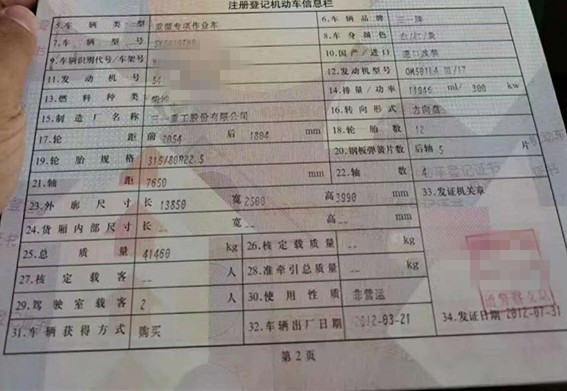 注册登记机动车信息栏
5.车辆类型 重型专项作业车 6.车辆品牌 三一牌
7.车辆型号 8.车身颜色 白/红/黄
9.车辆识别代号/车架号 10.国产/进口
11.发动机号 12.发动机型号 OM501LA
13.燃料种类 柴油 14.排量/功率 11946 ml/ 300 kw
15.制造厂名称 三一重工股份有限公司 16.转向形式 方向盘
17.轮距 前 2054 后 1804 mm 18.轮胎数 12
19.轮胎规格 315/80R22.5 20.钢板弹簧片数 后轴 5 片
21.轴距 7650 mm 22.轴数 4
23.外廓尺寸 长 13850 宽 2500 高 3990 mm 33.发证机关章
24.货厢内部尺寸 长 -- 宽 -- 高 -- mm
25.总质量 41460 kg 26.核定载质量 -- kg
27.核定载客 -- 人 28.准牵引总质量 -- kg
29.驾驶室载客 2 人 30.使用性质 非营运
31.车辆获得方式 购买 32.车辆出厂日期 2012-03-21 34.发证日期 2012-07-31
第 2 页